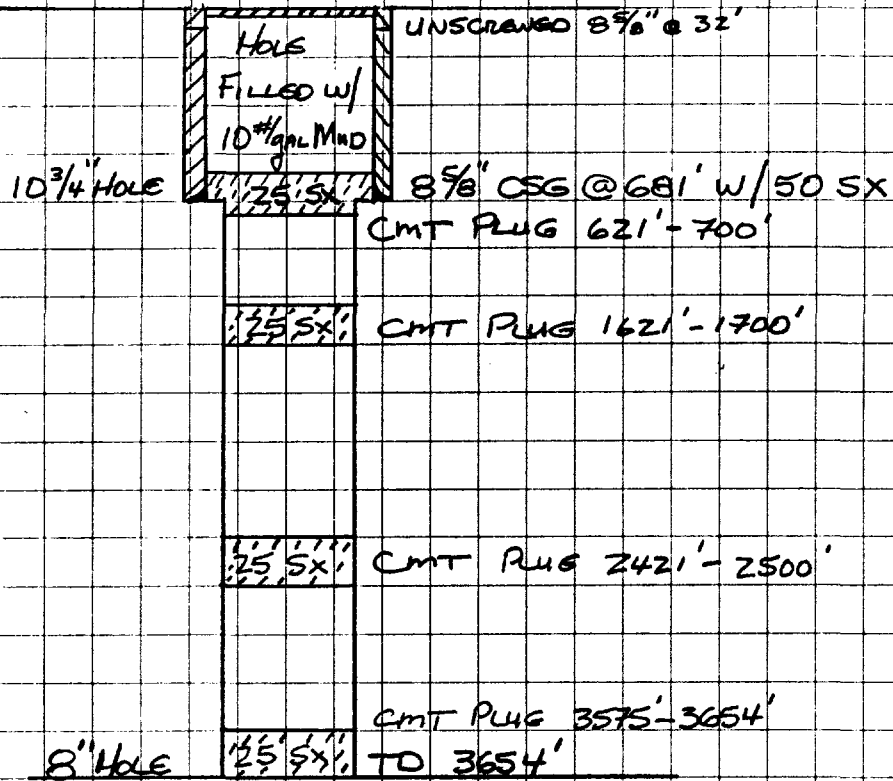 UNSCREWED 8 5/8" @ 32'
HOLE
FILLED W/
10#/gal MUD
10 3/4" HOLE
25 SX
8 5/8" CSG @ 681' W/ 50 SX
CMT PLUG 621'-700'
25 SX
CMT PLUG 1621'-1700'
25 SX
CMT PLUG 2421'-2500'
CMT PLUG 3575'-3654'
8" HOLE
25 SX
TD 3654'